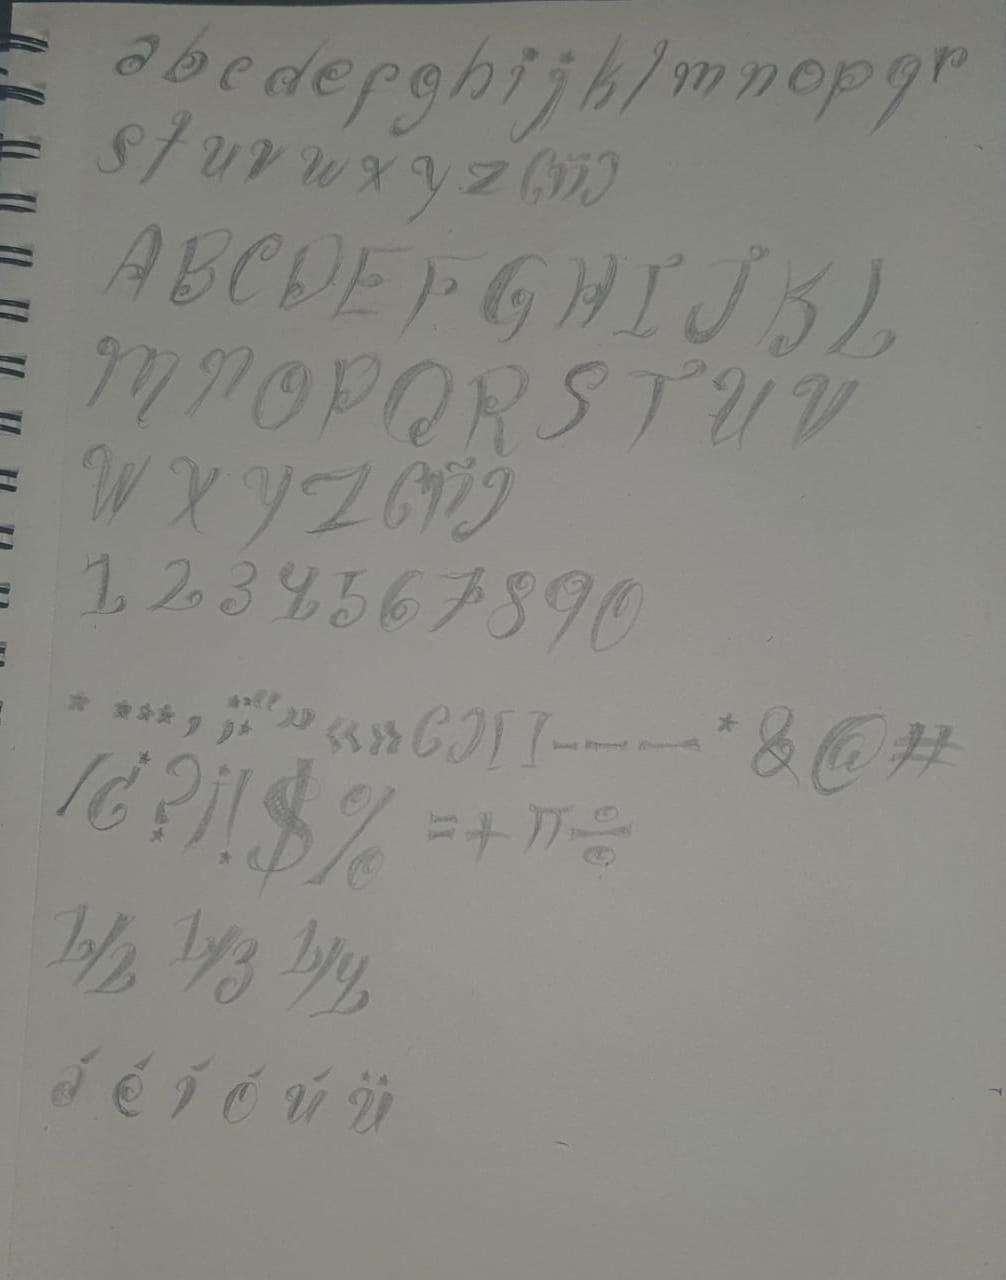 abcdefghijklmnopqr
stuvwxyz(ñ)
ABCDEFGHIJKL
MNOPQRSTUV
WXYZ(Ñ)
1234567890
. ... , ; : “ ” « » ( ) [ ] - – — * & @ #
/ ¿ ? ¡ ! $ % = + π ÷
1/2 1/3 1/4
á é í ó ú ü